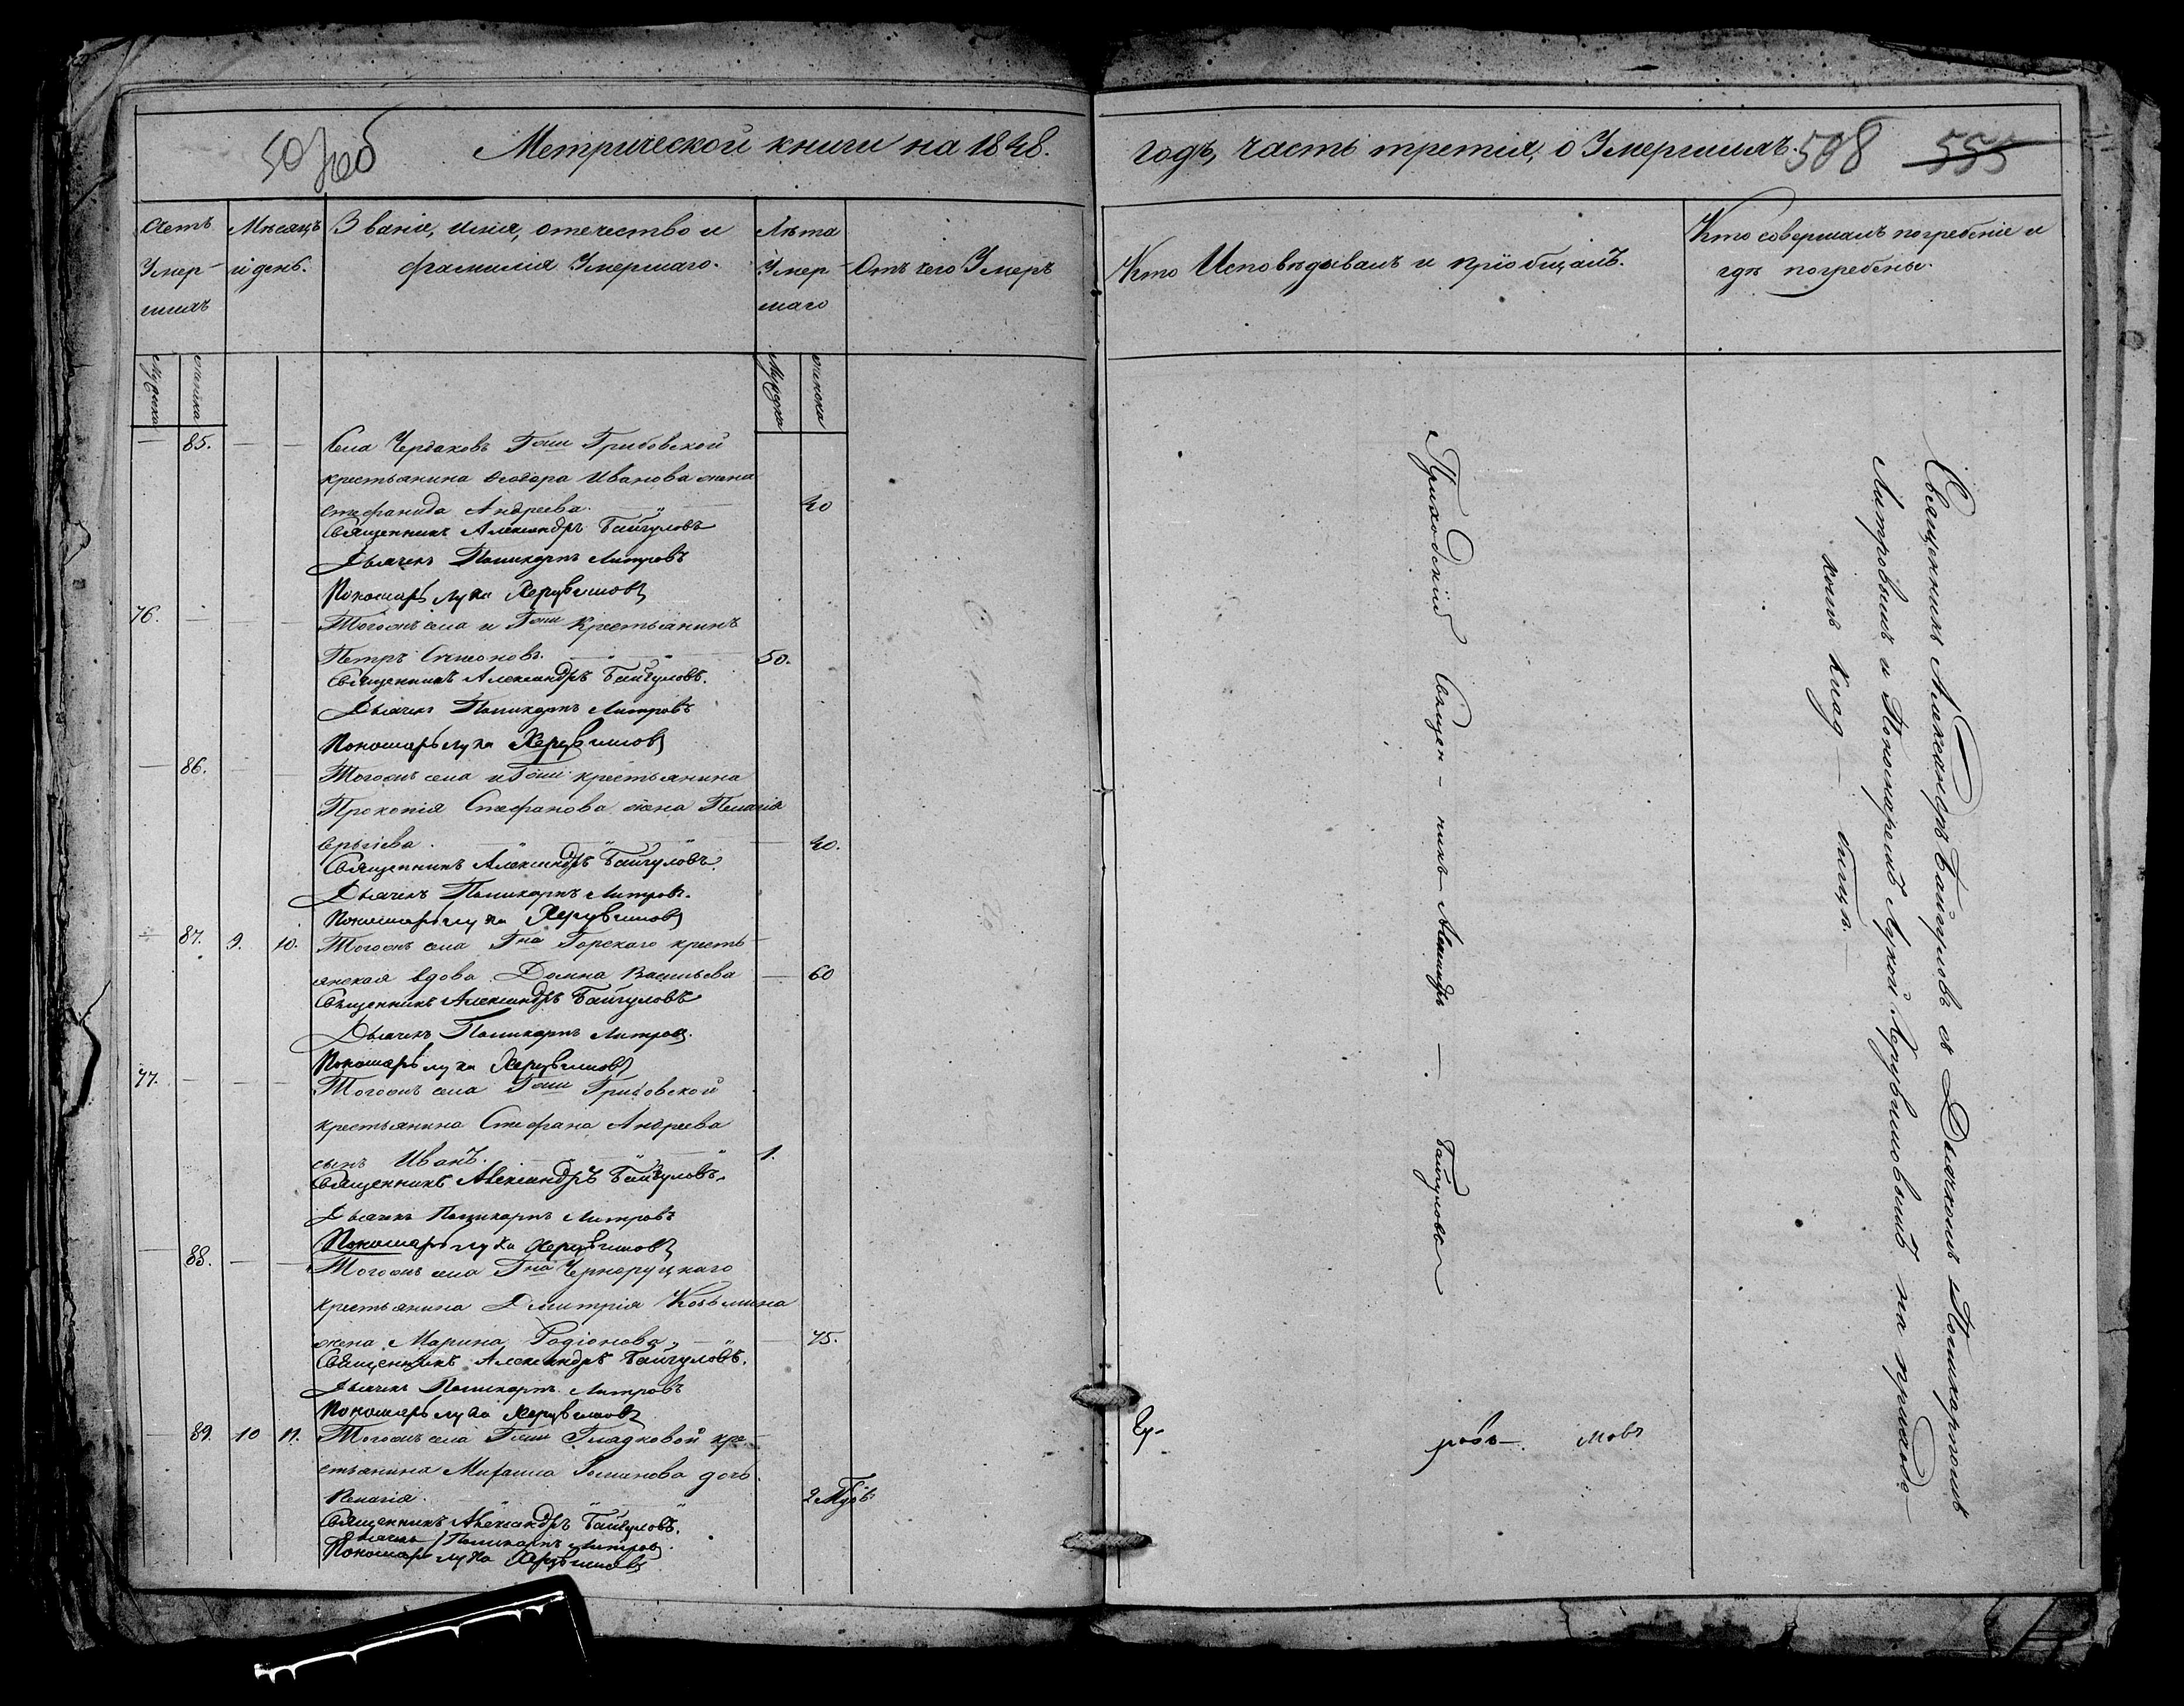 507об
Метрической книги на 1848.
Счетъ Умер-шихъ
Мѣсяцъ и день.
Званіе, имя, отечество и
фамилія Умершаго.
Лѣта Умер-шаго
Отъ чего Умеръ
Мужеска
Женска
Мужеска
Женска
— 85. — — Села Чердаковъ Гжи Грибовской
крестьянина Ѳеодора Иванова жена
Стефанида Андреева. 40
Священникъ Александръ Байгуловъ
Дьячекъ Поликарпъ Литровъ
Пономарь Лука Херувимовъ
76. — — — Тогожъ села и Гжи Крестьянинъ
Петръ Симеоновъ. 50.
Священникъ Александръ Байгуловъ.
Дьячекъ Поликарпъ Литровъ
Пономарь Лука Херувимовъ
— 86. — — Тогожъ села и Гжи крестьянина
Прокопія Стефанова жена Пелагія
Сергіева. — 40.
Священникъ Александръ Байгуловъ.
Дьячекъ Поликарпъ Литровъ.
Пономарь Лука Херувимовъ
— 87. 9. 10. Тогожъ села Гна Горскаго кресть-
янская вдова Домна Васильева — 60
Священникъ Александръ Байгуловъ
Дьячекъ Поликарпъ Литровъ.
Пономарь Лука Херувимовъ
77. — — — Тогожъ села Гжи Грибовской
крестьянина Стефана Андреева
сынъ Иванъ. 1.
Священникъ Александръ Байгуловъ.
Дьячекъ Поликарпъ Литровъ
Пономарь Лука Херувимовъ
— 88. — — Тогожъ села Гна Черноруцкаго
крестьянина Димитрія Козьмина
жена Марина Родіонова — 75.
Священникъ Александръ Байгуловъ.
Дьячекъ Поликарпъ Литровъ
Пономарь Лука Херувимовъ
— 89. 10 11. Тогожъ села Гжи Гладковой кре-
стьянина Михаила дочь
Пелагія.
Священникъ Александръ Байгуловъ.
Дьячекъ Поликарпъ Литровъ.
Пономарь Лука Херувимовъ
годъ, часть третія, о Умершихъ.
508 555
Кто Исповѣдывалъ и пріобщалъ.
Кто совершалъ погребеніе и
гдѣ погребены.
Приходскій Священ-никъ Александръ — Байгуловъ
Священникъ Александръ Байгуловъ съ Дьячкомъ Поликарпомъ
Литровымъ и Пономаремъ Лукой Херувимовымъ на приход-
комъ Клад — бищѣ. —